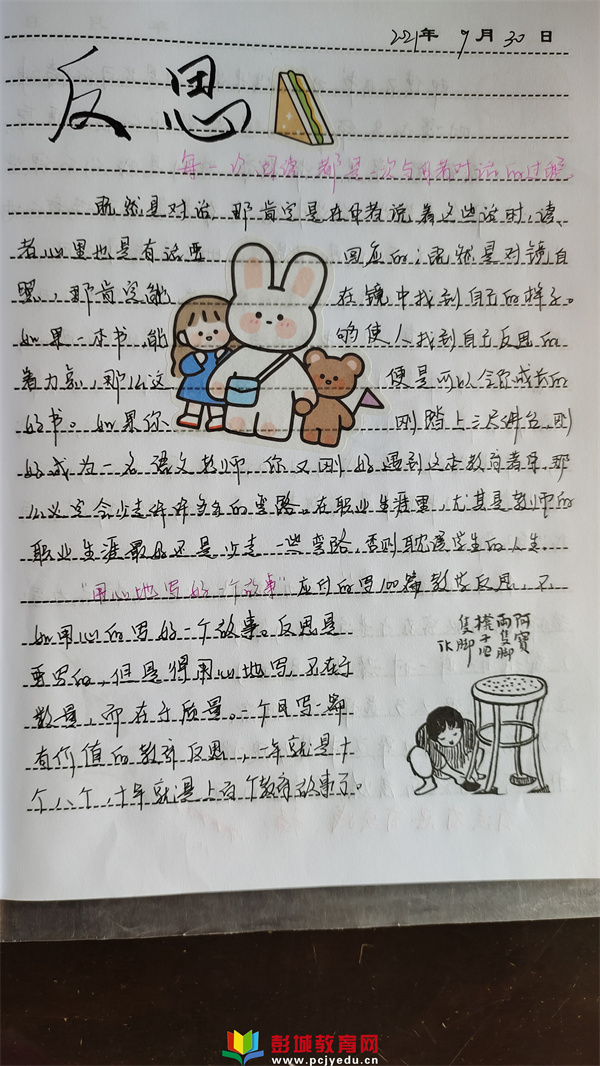 2021年 9月 30日
反思
每一次阅读,都是一次与作者对话的过程。
既然是对话,那肯定是在作者说着这些话时,读
者心里也是有话要回应的;既然是对镜自
照,那肯定能在镜中找到自己的样子。
如果一本书,能够使人找到自己反思的
着力点,那么这便是可以令你成长的
好书。如果你刚踏上三尺讲台,刚
好成为一名语文教师,你又刚好遇到这本教育著作,那
么必定会少走许许多多的弯路。在职业生涯里,尤其是教师的
职业生涯最好还是少走一些弯路,否则耽误学生的人生。
"用心地写好一个故事"应付的写100篇教学反思,不
如用心的写好一个故事。反思是
要写的,但是得用心地写,不在于
数量,而在于质量。一个月写一篇
有价值的教育反思,一年就是十
个八个,十年就是上百个教育故事了。
阿寶
兩隻脚
櫈子四
隻脚
TK
彭城教育网
www.pcjyedu.cn